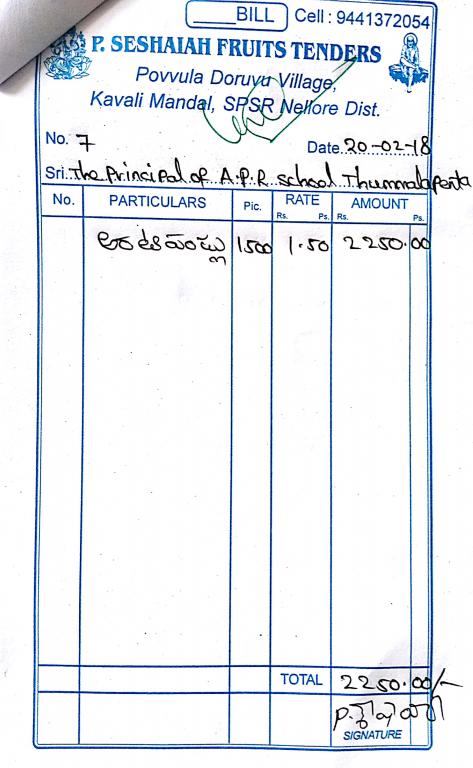 BILL Cell : 9441372054
P. SESHAIAH FRUITS TENDERS
Povvula Doruvu Village,
Kavali Mandal, SPSR Nellore Dist.
No. 7 Date 20-02-18
Sri. The Principal of A.P.R. school Thummalapenta
No. PARTICULARS Pic. RATE AMOUNT
Rs. Ps. Rs. Ps.
అరటిపండ్లు 1500 1.50 2250.00
TOTAL 2250.00/-
SIGNATURE